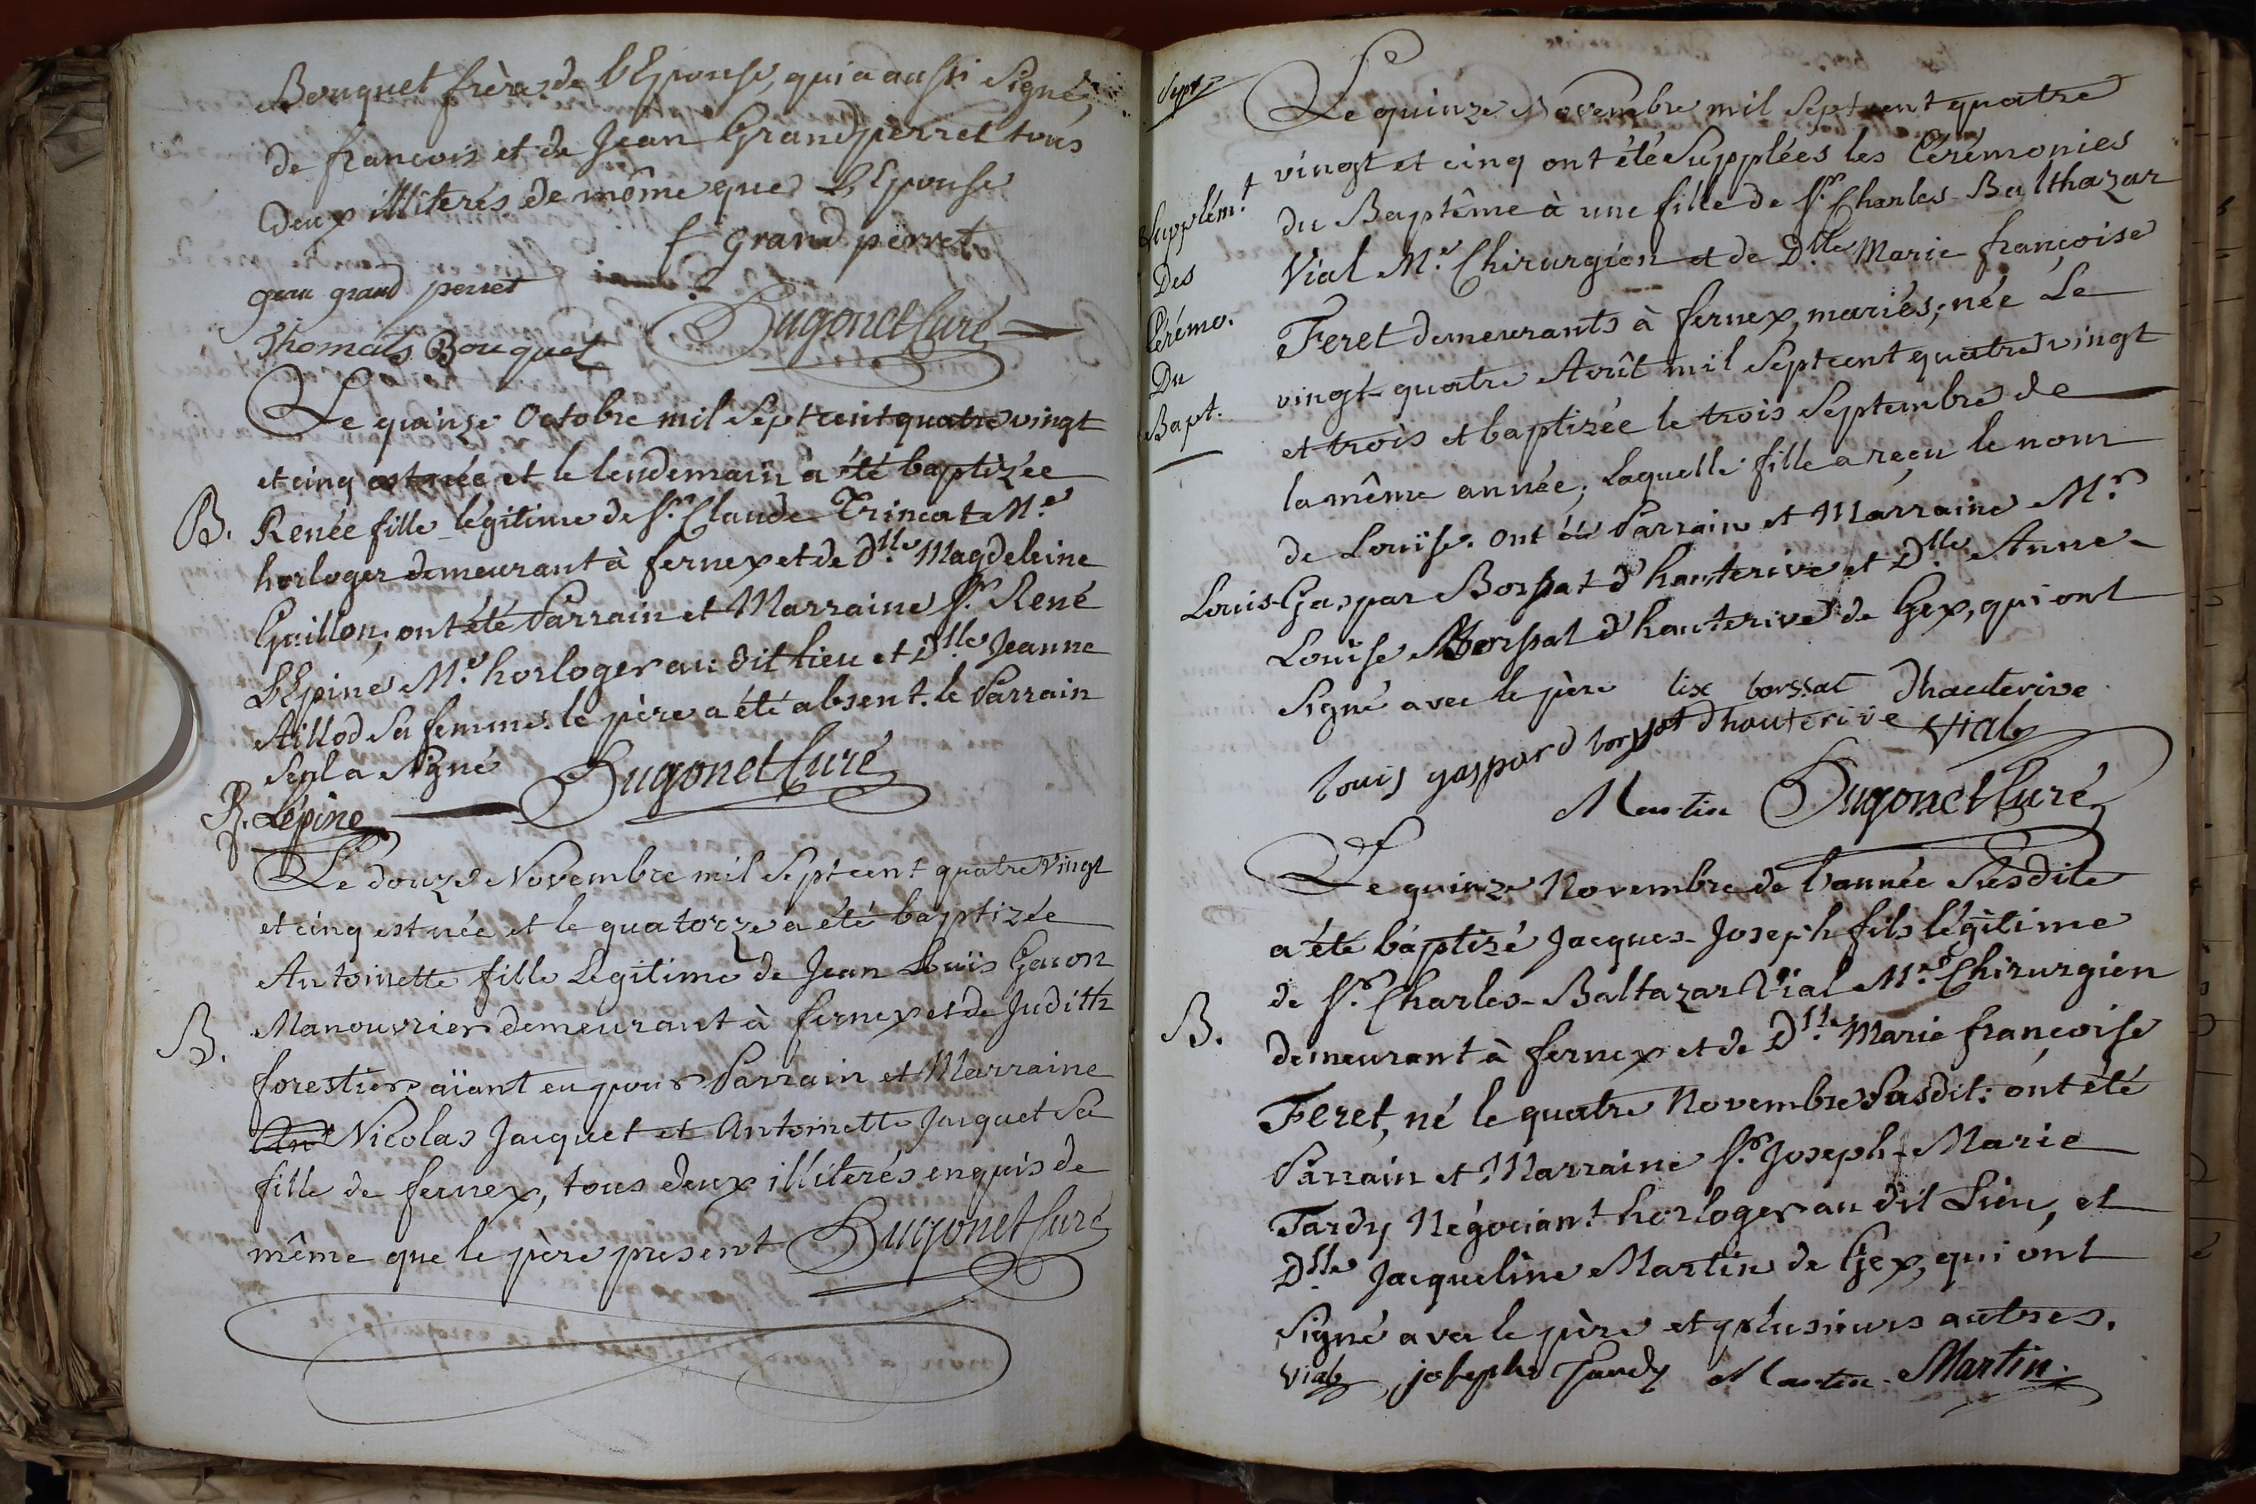 Bouquet frère de l'Epouse, qui a aussi Signé,
de francois et de Jean Grandperret tous
deux illiterés de même que l'Epouse
f grand perret
jean grand perret
Thomas Bouquet Dugonet Curé
Le quinze Octobre mil Septcent quatre vingt
et cinq est née et le lendemain a été baptizée
B. Renée fille légitime de Sr. Claude Trincat Me.
horloger demeurant à fernex et de Dlle. Magdeleine
Guillon; ont été Parrain et Marraine Sr. René
L'Epine Me. horloger au dit lieu et Dlle Jeanne
Aillod Sa femme. le père a été absent. le Parrain
Seul a Signé Dugonet Curé
R. Lépine
Le douze Novembre mil Septcent quatre vingt
et cinq est née et le quatorze a été baptizée
Antoinette fille Legitime de Jean Louïs Gacon
B. Manouvrier demeurant à fernex et de Judith
forestier, aïant eu pour Parrain et Marraine
Ant Nicolas Jacquet et Antoinette Jacquet Sa
fille de fernex, tous deux illiterés enquis de
même que le père present Dugonet Curé
Sept
Supplém.t
Des
Cérémo.
Du
Bapt.
Le quinze Novembre mil Septcent quatre
vingt et cinq ont été Supplées les Cérémonies
du Baptême à une fille de Sr. Charles-Balthazar
Vial Me. Chirurgien et de Dlle Marie françoise
Feret demeurants à fernex, mariés; née Le
vingt-quatre Août mil Septcent quatre vingt
et trois et baptizée le trois Septembre de
la même année; Laquelle fille a reçu le nom
de Louïse. ont été Parrain et Marraine Mr.
Louis-Gaspar Borssat d'hauterive et Dlle. Anne-
Louïse Borssat d'hauterive de Gex, qui ont
Signé avec le père lix borssat Dhauterive
louis gaspard borssat Dhauterive Vial
Martin Dugonet Curé
Le quinze Novembre de l'année Susdite
a été baptizé Jacques-Joseph fils légitime
de Sr. Charles-Baltazar Vial Me. Chirurgien
B. demeurant à fernex et de Dlle. Marie françoise
Feret, né le quatre Novembre Susdit: ont été
Parrain et Marraine Sr. Joseph-Marie
Tardy Négociant horloger au dit Lieu, et
Dlle. Jacqueline Martin de Gex, qui ont
Signé avec le père et plusieurs autres.
Vial joseph Tardy Martin Martin.